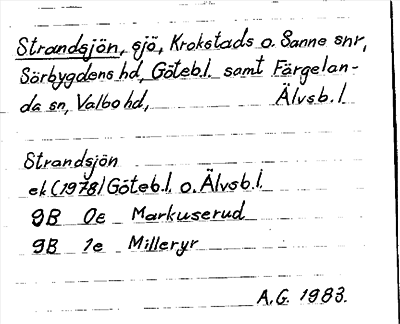 Strandsjön, sjö, Krokstads o. Sanne snr,
Sörbygdens hd, Göteb.l. samt Färgelan-
da sn, Valbo hd, Älvsb.l
Strandsjön
ek (1978) Göteb.l. o. Älvsb.l.
9B 0e Markuserud
9B 1e Milleryr
A.G. 1983.